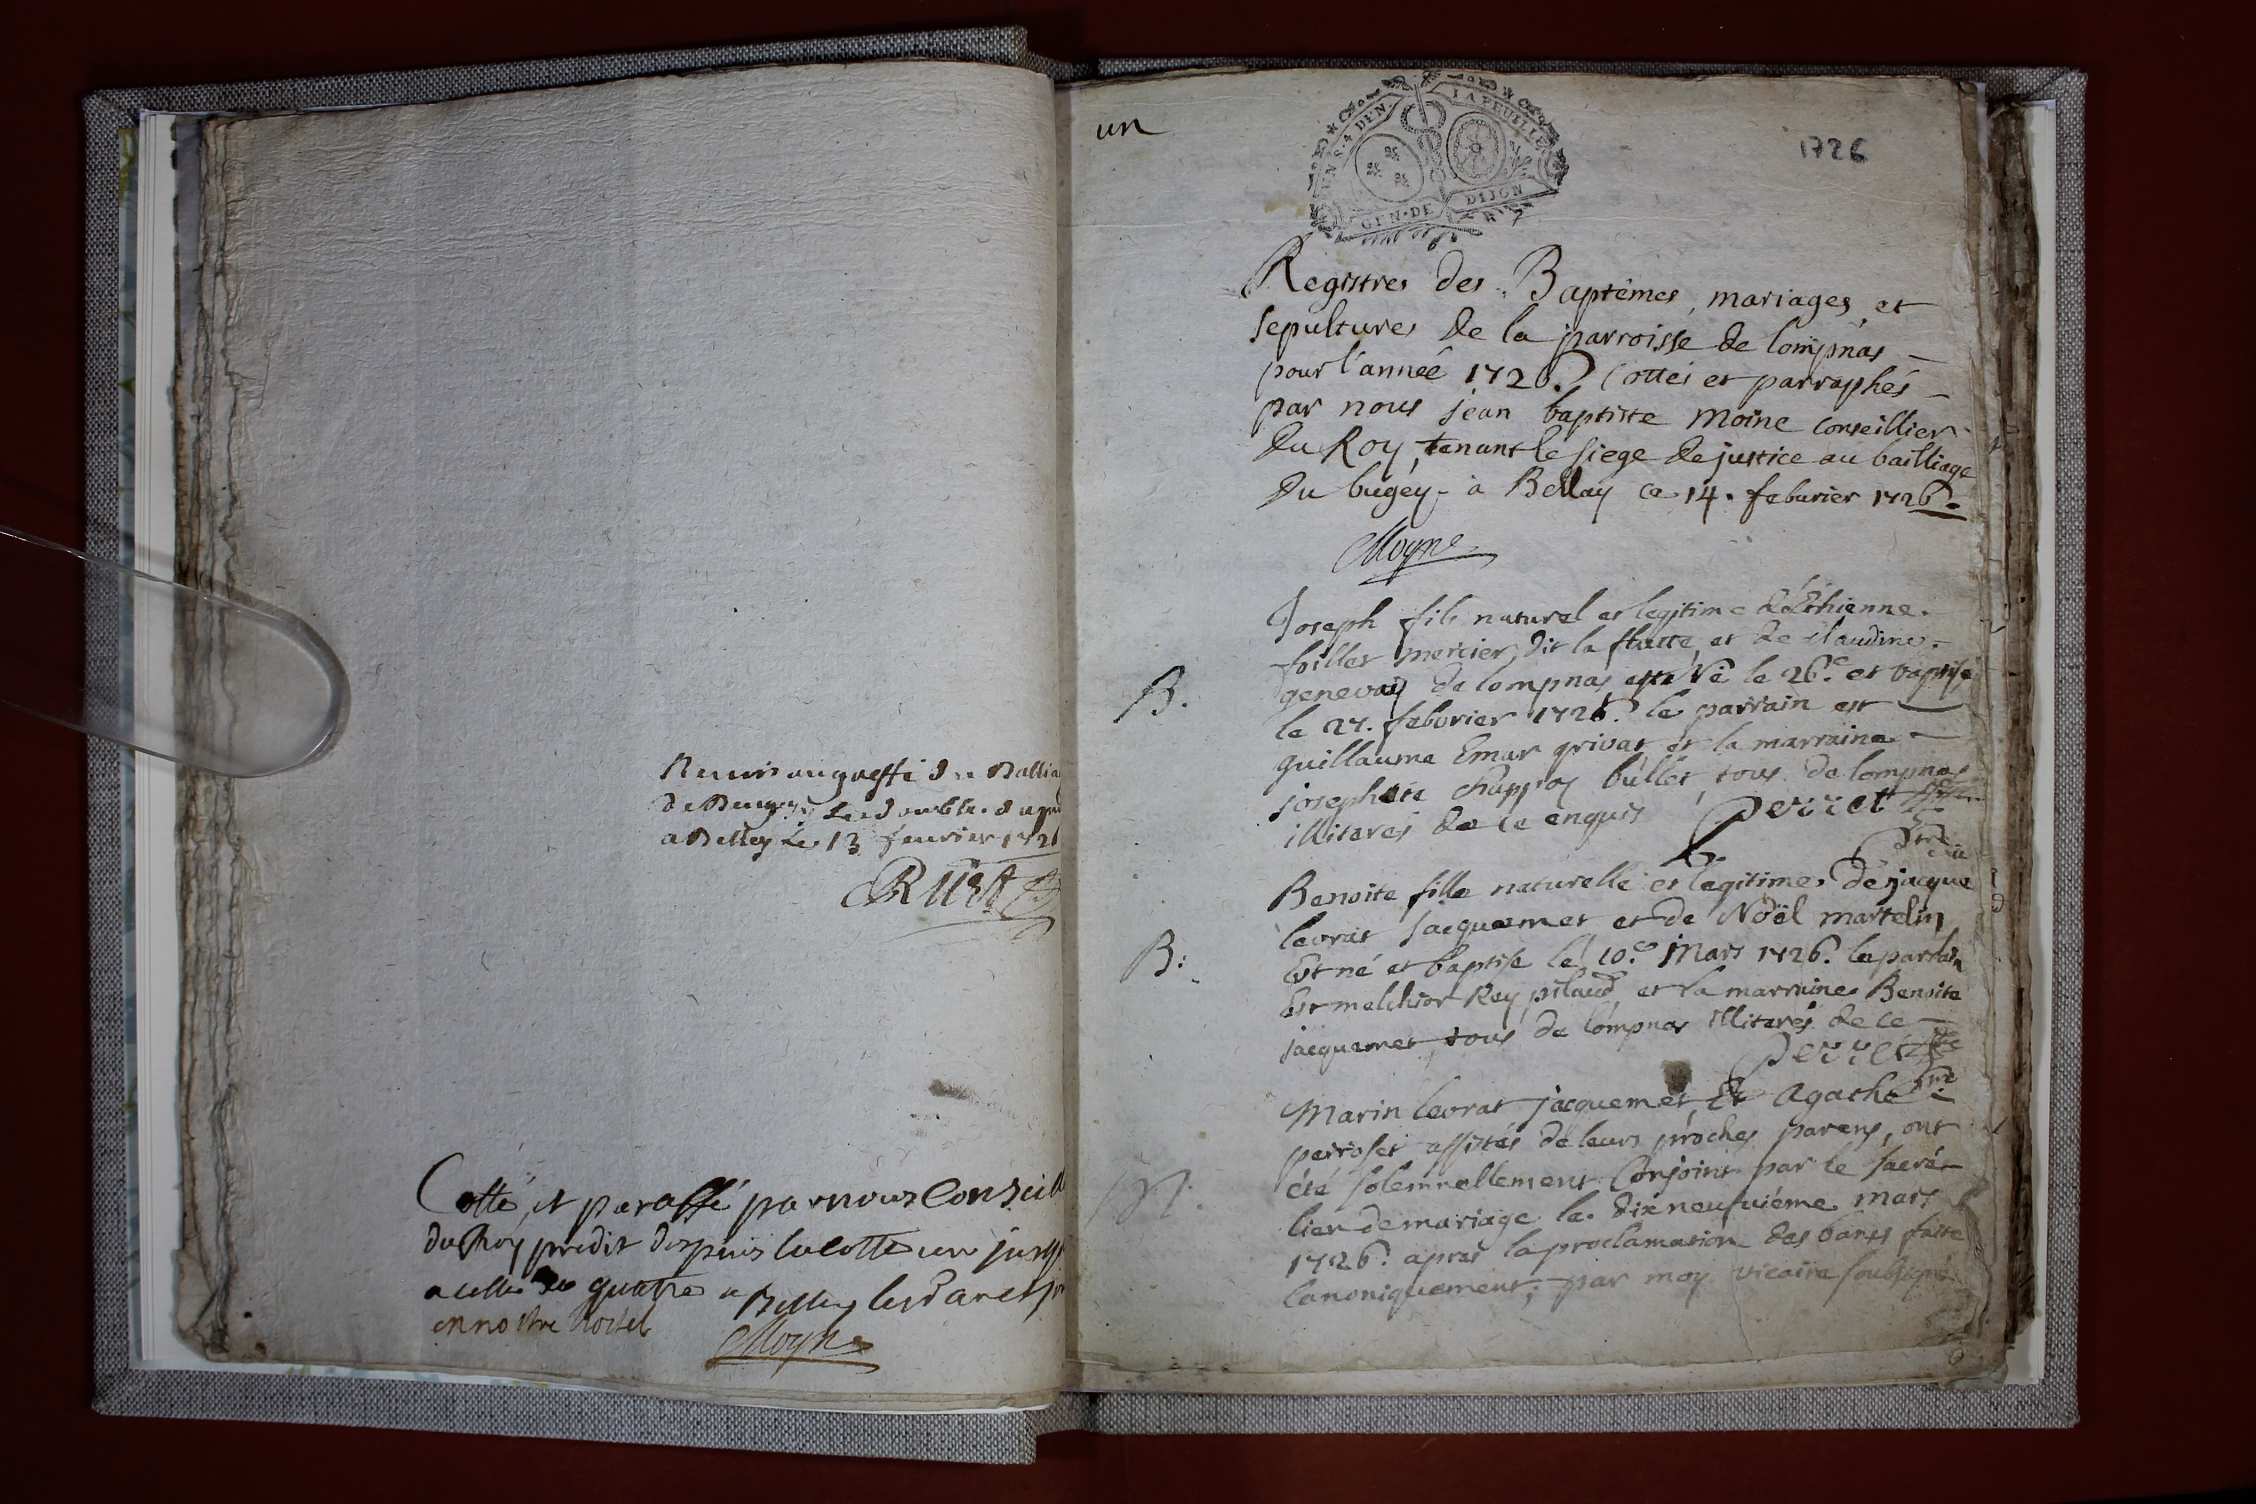 Remis au greffe du Ballia
de Beugey le double du pnt
a Belley le 13 feurier 1726
Cotté et paraffé par nous Conseill
du Roy predit depuis la cotte un jusqu
a celle de quatre a Belley les an et jo
en nostre hostel
Moyne
un
UN S. 4 DEN. LA FEUILLE
GEN. DE DIJON
1726
Registres des Baptêmes, mariages, et
sepultures de la parroisse de lompnas
pour l'année 1726. Cottés et parraphés
par nous jean baptiste Moine conseillier
du Roy, tenant le siege de justice au bailliage
du bugey. à Bellay ce 14. feburier 1726.
Moyne
Joseph fils naturel et legitime d'Ethienne
foillet mercier, dit la flutte, et de Claudine
B.
genevois de lompnas est né le 26.e et baptisé
le 27. feburier 1726. le parrain est
guillaume Emar grivat et la marraine
josephte bullet, tous de lompnas
illiterés de ce enquis Perret
Benoite fille naturelle et legitime de jacque
levrat jacquemet et de Noël martelin
B:
Est né et baptisé le 10.e Mars 1726. le parrain
Est melchior Rey pilaud, et la marraine Benoite
jacquemet, tous de lompnas illiterés de ce
Perret
Marin levrat jacquemet, Et Agathe
perroset assistés de leurs proches parens, ont
M.
été solemnellement Conjoint par le sacré
lien de mariage le dixneufuiéme mars
1726. apres la proclamation des bans faite
Canoniquement; par moy vicaire soubsigné